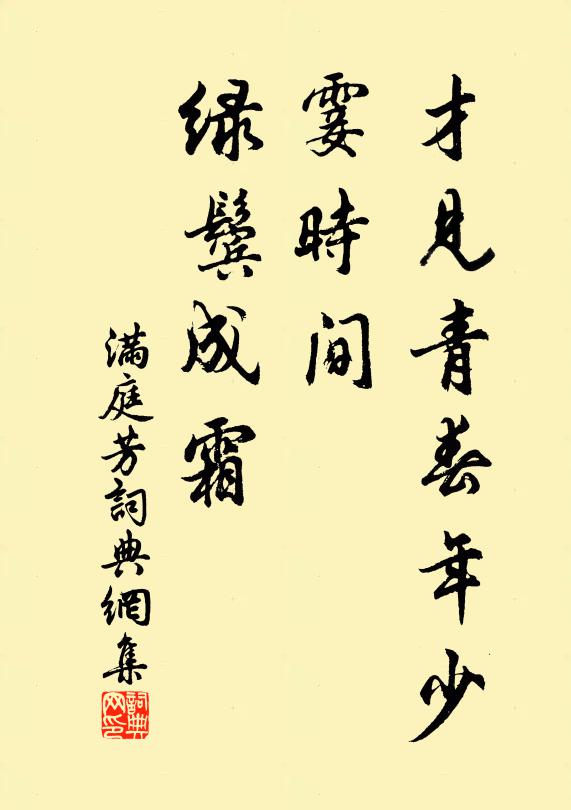 才見青春年少
霎時間
緑鬢成霜
滿庭芳詞典網集
詞典
网印